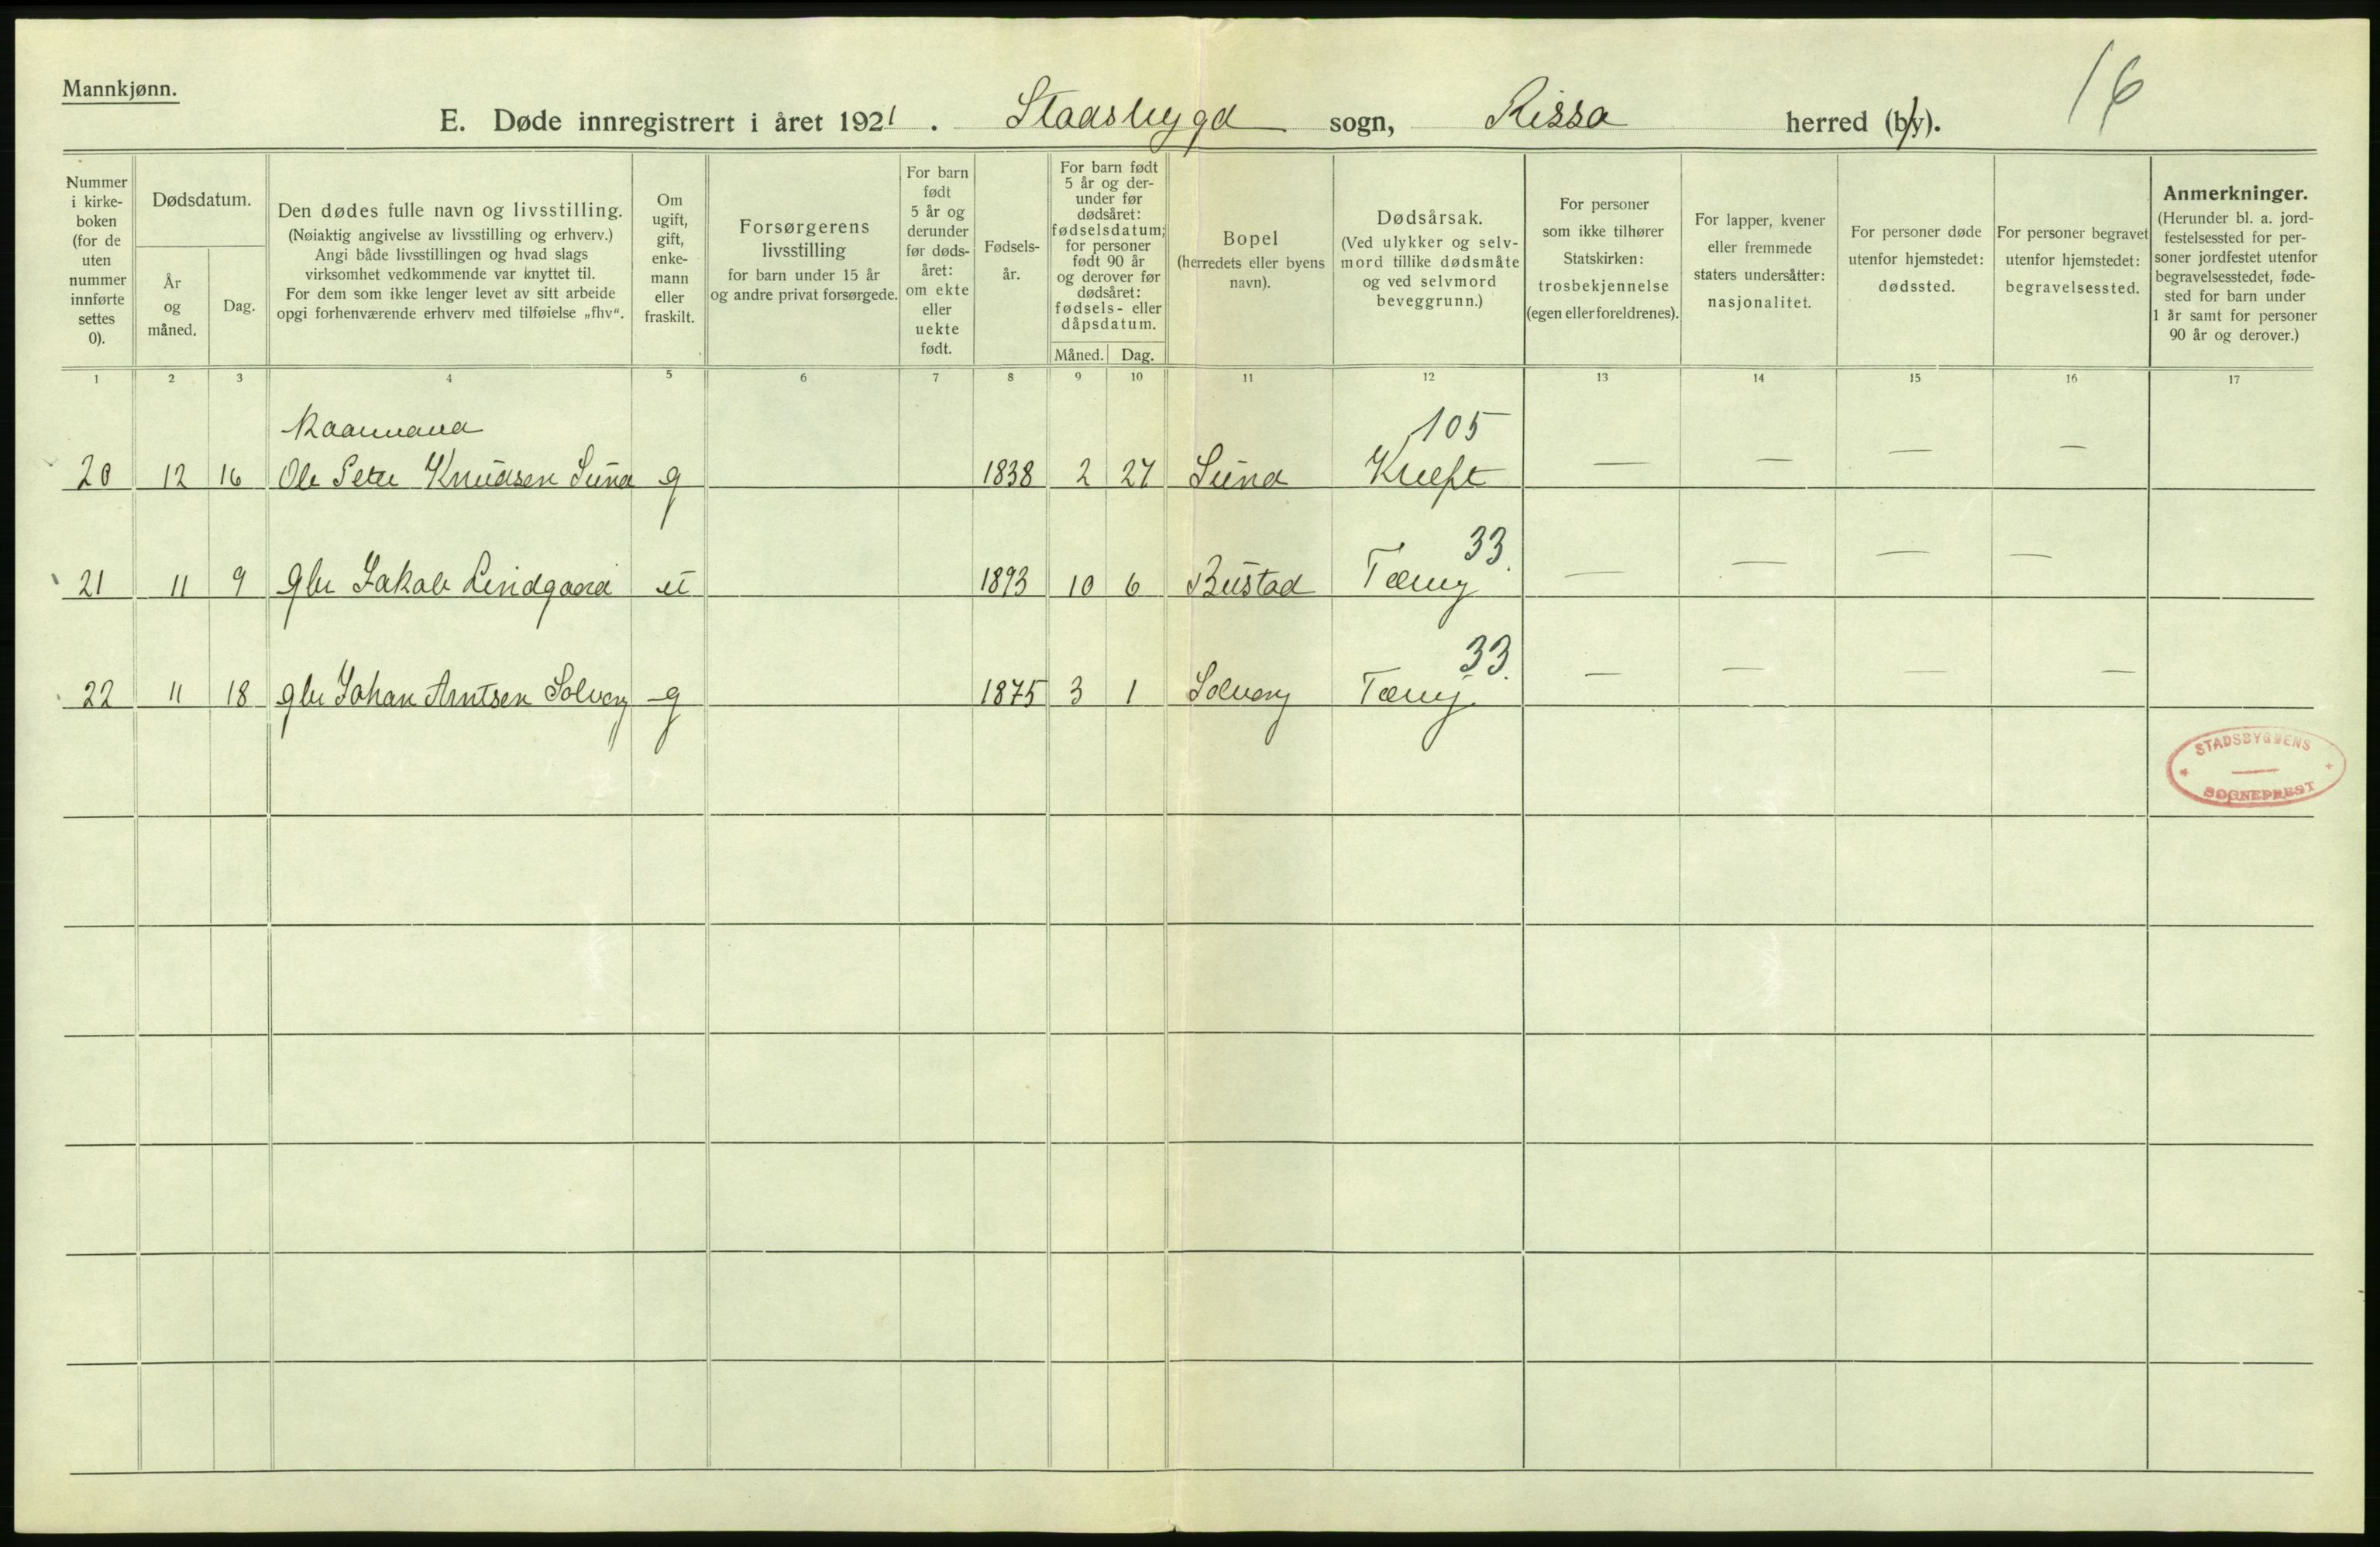 Mannkjønn.
16
E. Døde innregistrert i året 1921. Stadsbygd sogn, Rissa herred (by).
Nummer i kirke- boken (for de uten nummer innførte settes 0).
Dødsdatum.
År og måned.
Dag.
Den dødes fulle navn og livsstilling.
(Nøiaktig angivelse av livsstilling og erhverv.)
Angi både livsstillingen og hvad slags
virksomhet vedkommende var knyttet til.
For dem som ikke lenger levet av sitt arbeide
opgi forhenværende erhverv med tilføielse „fhv“.
Om ugift, gift, enke- mann eller fraskilt.
Forsørgerens
livsstilling
for barn under 15 år
og andre privat forsørgede.
For barn født 5 år og derunder før døds- året: om ekte eller uekte født.
Fødsels- år.
For barn født 5 år og der- under før dødsåret: fødselsdatum; for personer født 90 år og derover før dødsåret: fødsels- eller dåpsdatum.
Måned. Dag.
Bopel
(herredets eller byens
navn).
Dødsårsak.
(Ved ulykker og selv-
mord tillike dødsmåte
og ved selvmord
beveggrunn.)
For personer
som ikke tilhører
Statskirken:
trosbekjennelse
(egen eller foreldrenes).
For lapper, kvener
eller fremmede
staters undersåtter:
nasjonalitet.
For personer døde
utenfor hjemstedet:
dødssted.
For personer begravet
utenfor hjemstedet:
begravelsessted.
Anmerkninger.
(Herunder bl. a. jord-
festelsessted for per-
soner jordfestet utenfor
begravelsesstedet, føde-
sted for barn under
1 år samt for personer
90 år og derover.)
1 2 3 4 5 6 7 8 9 10 11 12 13 14 15 16 17
Kaarmand 105
20 12 16 Ole Peter Knudsen Sund g 1838 2 27 Sund Kreft — — — —
33
21 11 9 gbr Jakob Lindgaard u 1893 10 6 Bustad Tæring — — — —
33
22 11 18 gbr Johan Arntsen Solveng g 1875 3 1 Solveng Tæring — — — —
STADSBYGDENS
SOGNEPREST